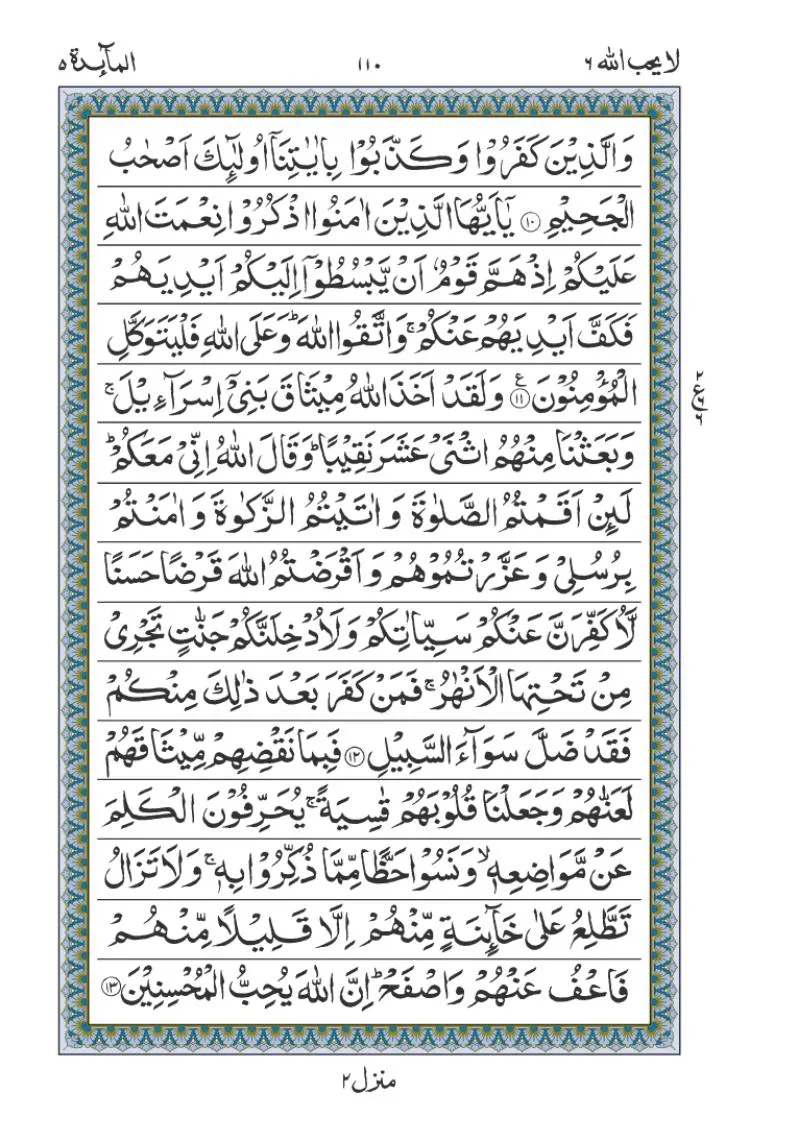 لا يحب الله ٦
١١٠
المآىِٕدة ٥
وَالَّذِيْنَ كَفَرُوْا وَكَذَّبُوْا بِاٰيٰتِنَاۤ اُولٰٓىِٕكَ اَصْحٰبُ
الْجَحِيْمِ ۝١٠ يٰۤاَيُّهَا الَّذِيْنَ اٰمَنُوا اذْكُرُوْا نِعْمَتَ اللّٰهِ
عَلَيْكُمْ اِذْ هَمَّ قَوْمٌ اَنْ يَّبْسُطُوْۤا اِلَيْكُمْ اَيْدِيَهُمْ
فَكَفَّ اَيْدِيَهُمْ عَنْكُمْ ۚ وَاتَّقُوا اللّٰهَ ؕ وَعَلَى اللّٰهِ فَلْيَتَوَكَّلِ
الْمُؤْمِنُوْنَ ۝١١ ع وَلَقَدْ اَخَذَ اللّٰهُ مِيْثَاقَ بَنِيْۤ اِسْرَآءِيْلَ ۚ
وَبَعَثْنَا مِنْهُمُ اثْنَيْ عَشَرَ نَقِيْبًا ؕ وَقَالَ اللّٰهُ اِنِّيْ مَعَكُمْ ؕ
لَىِٕنْ اَقَمْتُمُ الصَّلٰوةَ وَاٰتَيْتُمُ الزَّكٰوةَ وَاٰمَنْتُمْ
بِرُسُلِيْ وَعَزَّرْتُمُوْهُمْ وَاَقْرَضْتُمُ اللّٰهَ قَرْضًا حَسَنًا
لَّاُكَفِّرَنَّ عَنْكُمْ سَيِّاٰتِكُمْ وَلَاُدْخِلَنَّكُمْ جَنّٰتٍ تَجْرِيْ
مِنْ تَحْتِهَا الْاَنْهٰرُ ۚ فَمَنْ كَفَرَ بَعْدَ ذٰلِكَ مِنْكُمْ
فَقَدْ ضَلَّ سَوَآءَ السَّبِيْلِ ۝١٢ فَبِمَا نَقْضِهِمْ مِّيْثَاقَهُمْ
لَعَنّٰهُمْ وَجَعَلْنَا قُلُوْبَهُمْ قٰسِيَةً ۚ يُحَرِّفُوْنَ الْكَلِمَ
عَنْ مَّوَاضِعِهٖ ۙ وَنَسُوْا حَظًّا مِّمَّا ذُكِّرُوْا بِهٖ ۚ وَلَا تَزَالُ
تَطَّلِعُ عَلٰى خَآىِٕنَةٍ مِّنْهُمْ اِلَّا قَلِيْلًا مِّنْهُمْ
فَاعْفُ عَنْهُمْ وَاصْفَحْ ؕ اِنَّ اللّٰهَ يُحِبُّ الْمُحْسِنِيْنَ ۝١٣
منزل ٢